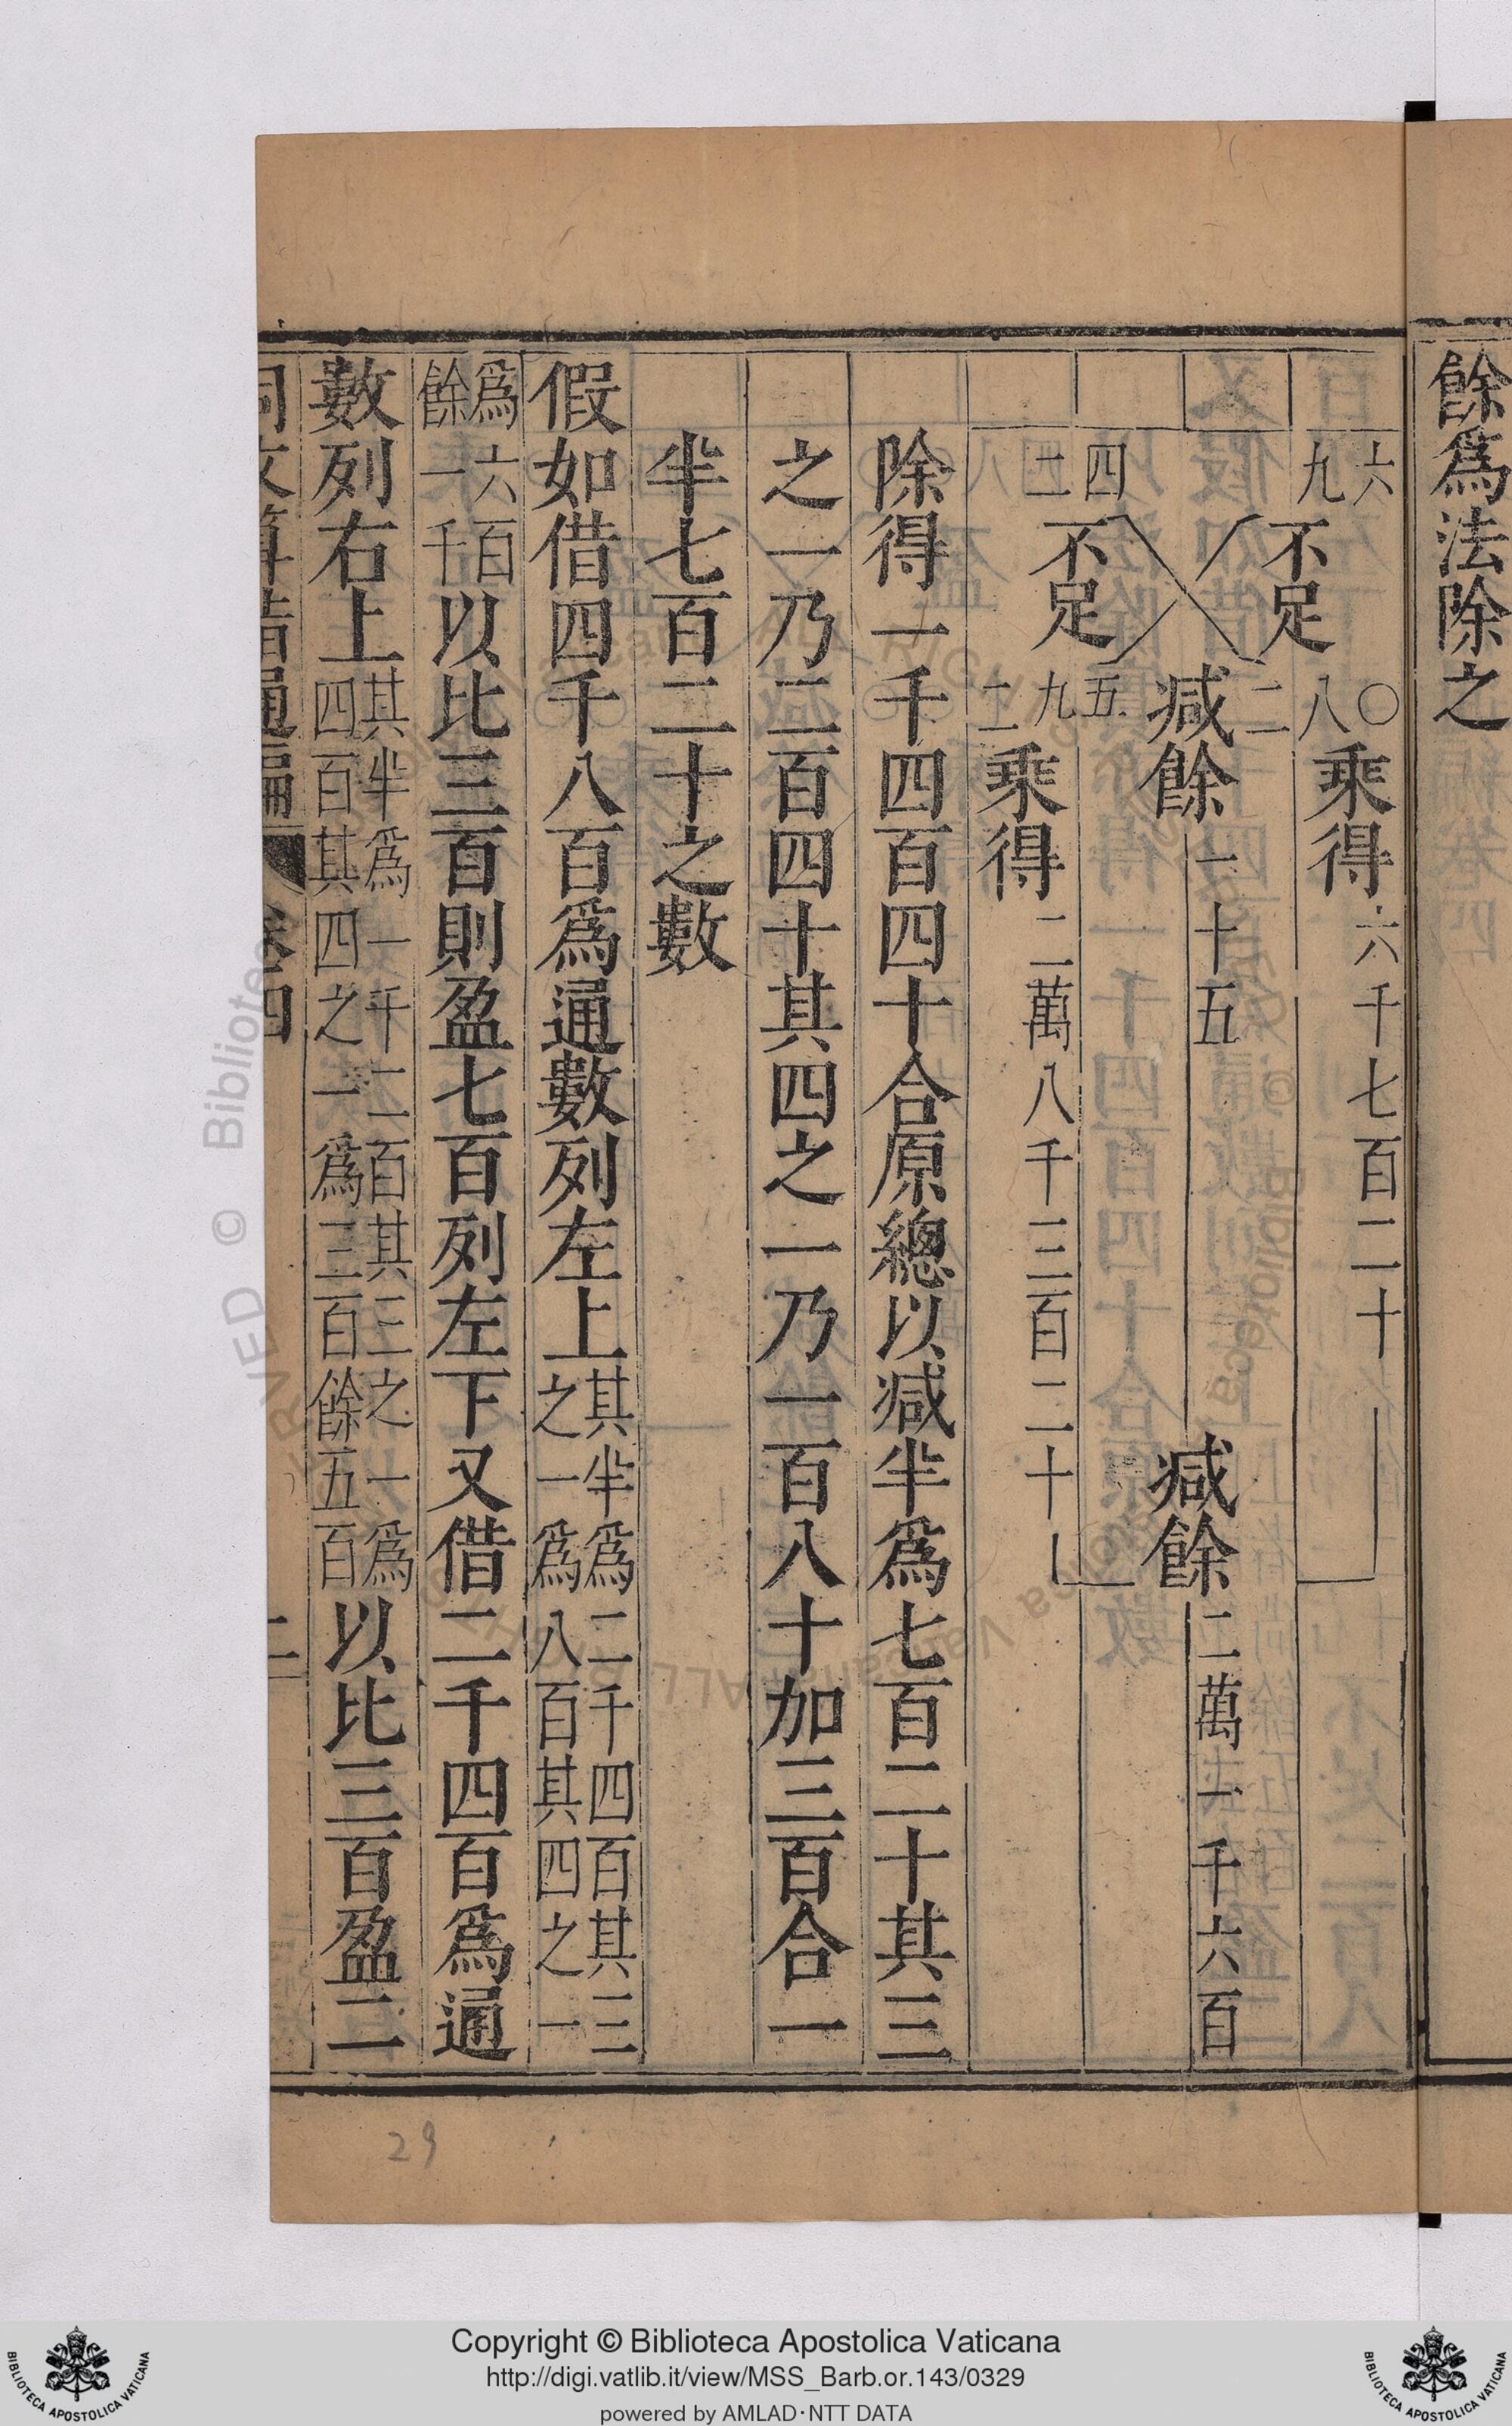 餘爲法除之
六九 不足 〇八二 乘得 六千七百二十
減餘 一十五 減餘 二萬一千六百
四二 不足 五九二 乘得 二萬八千三百二十
除得一千四百四十合原總以減半爲七百二十其三
之一乃二百四十其四之一乃一百八十加三百合一
半七百二十之數
假如借四千八百爲通數列左上其半爲二千四百其三之一爲八百其四之一
爲六百餘一千以比三百則盈七百列左下又借二千四百爲通
數列右上其半爲一千二百其三之一爲四百其四之一爲三百餘五百以比三百盈二
同文算指通編 卷四 二
29
Copyright © Biblioteca Apostolica Vaticana
http://digi.vatlib.it/view/MSS_Barb.or.143/0329
powered by AMLAD·NTT DATA
BIBLIOTECA APOSTOLICA VATICANA
BIBLIOTECA APOSTOLICA VATICANA